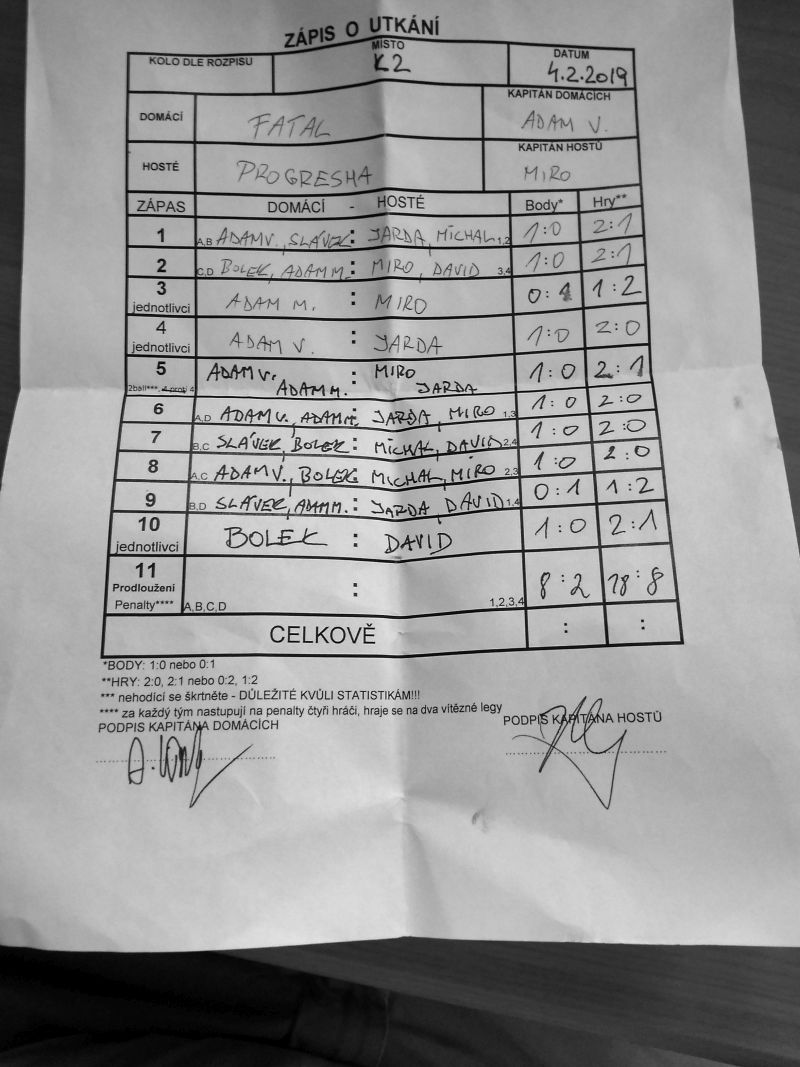 ZÁPIS O UTKÁNÍ
KOLO DLE ROZPISU MÍSTO K2 DATUM 4.2.2019
DOMÁCÍ FATAL KAPITÁN DOMÁCÍCH ADAM V.
HOSTÉ PROGRESHA KAPITÁN HOSTŮ MIRO
ZÁPAS DOMÁCÍ - HOSTÉ Body* Hry**
1 A,B ADAM V., SLÁVEK : JARDA, MICHAL 1,2 1:0 2:1
2 C,D BOLEK, ADAM M. : MIRO, DAVID 3,4 1:0 2:1
3 jednotlivci ADAM M. : MIRO 0:1 1:2
4 jednotlivci ADAM V. : JARDA 1:0 2:0
5 ADAM V. : MIRO 1:0 2:1
2ball***, 4 proti 4 ADAM M. JARDA
6 A,D ADAM V., ADAM M. : JARDA, MIRO 1,3 1:0 2:0
7 B,C SLÁVEK, BOLEK : MICHAL, DAVID 2,4 1:0 2:0
8 A,C ADAM V., BOLEK : MICHAL, MIRO 2,3 1:0 2:0
9 B,D SLÁVEK, ADAM M. : JARDA, DAVID 1,4 0:1 1:2
10 jednotlivci BOLEK : DAVID 1:0 2:1
11 Prodloužení : 8:2 18:8
Penalty**** A,B,C,D 1,2,3,4
CELKOVĚ : :
*BODY: 1:0 nebo 0:1
**HRY: 2:0, 2:1 nebo 0:2, 1:2
*** nehodící se škrtněte - DŮLEŽITÉ KVŮLI STATISTIKÁM!!!
**** za každý tým nastupují na penalty čtyři hráči, hraje se na dva vítězné legy
PODPIS KAPITÁNA DOMÁCÍCH PODPIS KAPITÁNA HOSTŮ